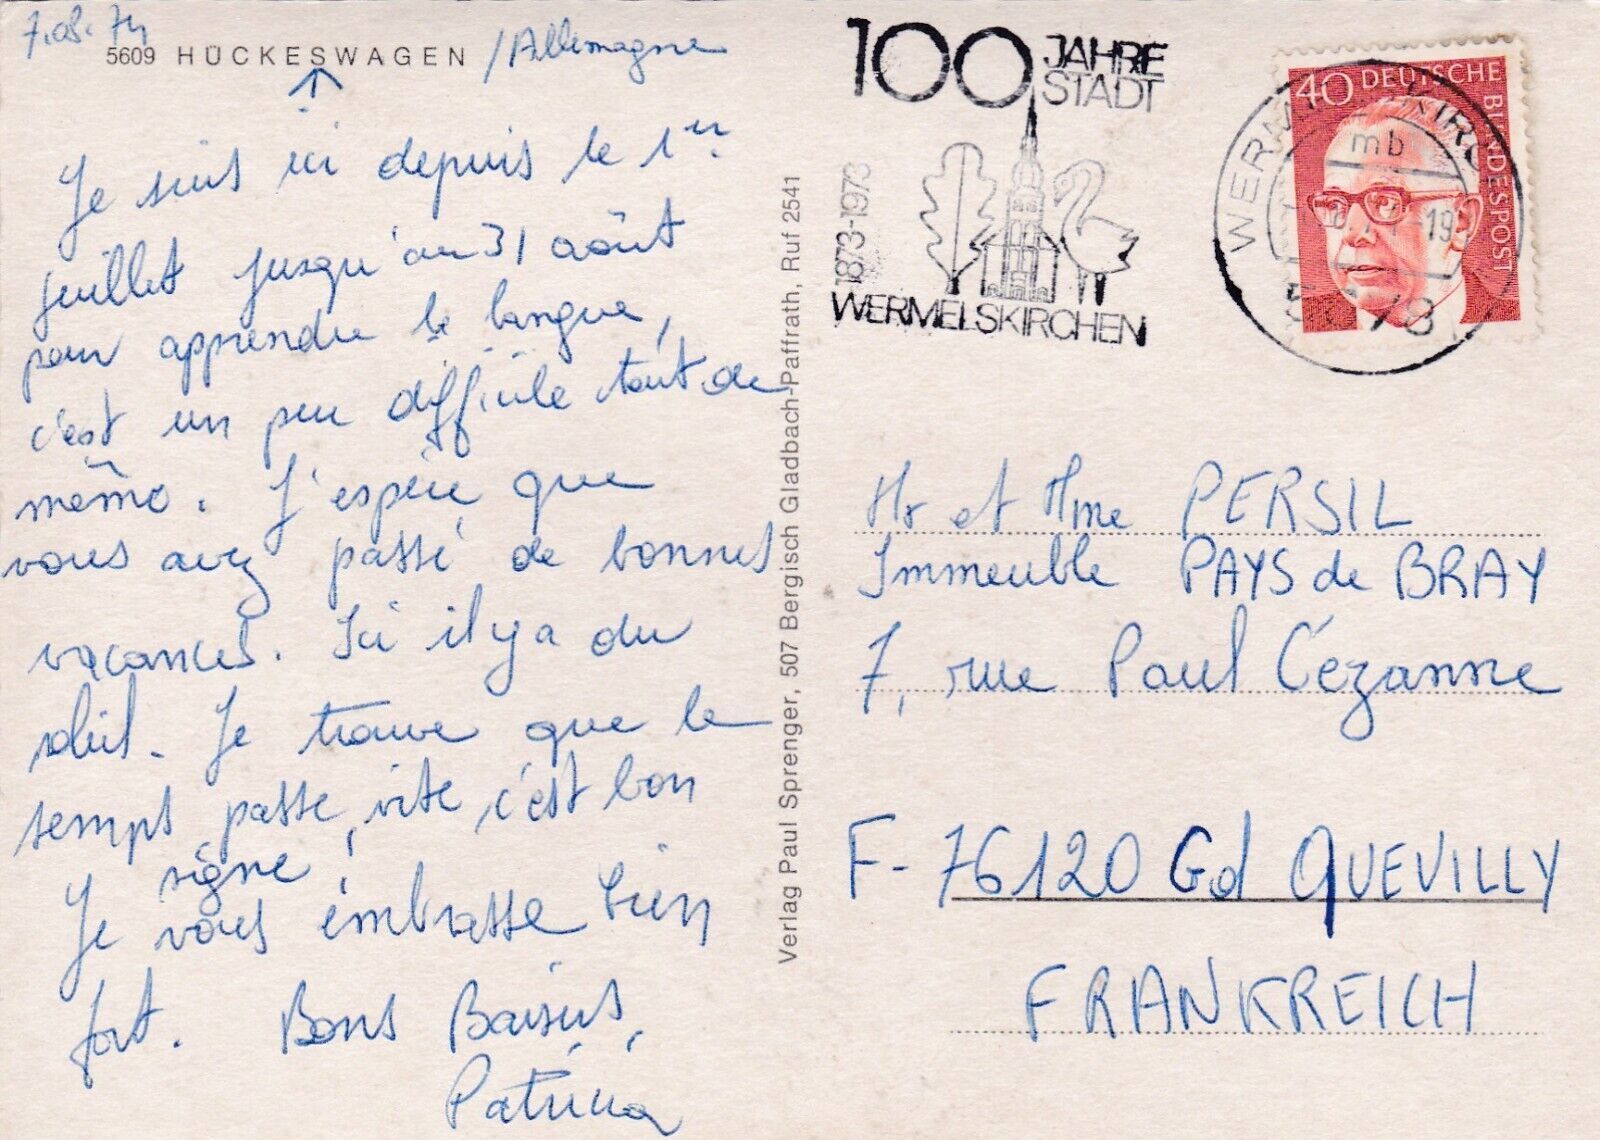 7.08.74
5609 HÜCKESWAGEN /Allemagne
Je suis ici depuis le 1er
juillet jusqu'au 31 août
pour apprendre la langue,
c'est un peu difficile tout de
même. J'espère que
vous avez passé de bonnes
vacances. Ici il y a du
soleil. Je trouve que le
temps passe vite, c'est bon
signe !
Je vous embrasse bien
fort. Bons Baisers,
Patricia
Verlag Paul Sprenger, 507 Bergisch Gladbach-Paffrath, Ruf 2541
100 JAHRE
STADT
1873-1973
WERMELSKIRCHEN
40 DEUTSCHE BUNDESPOST
mb
Mr et Mme PERSIL
Immeuble PAYS de BRAY
7, rue Paul Cézanne
F-76120 Gd QUEVILLY
FRANKREICH